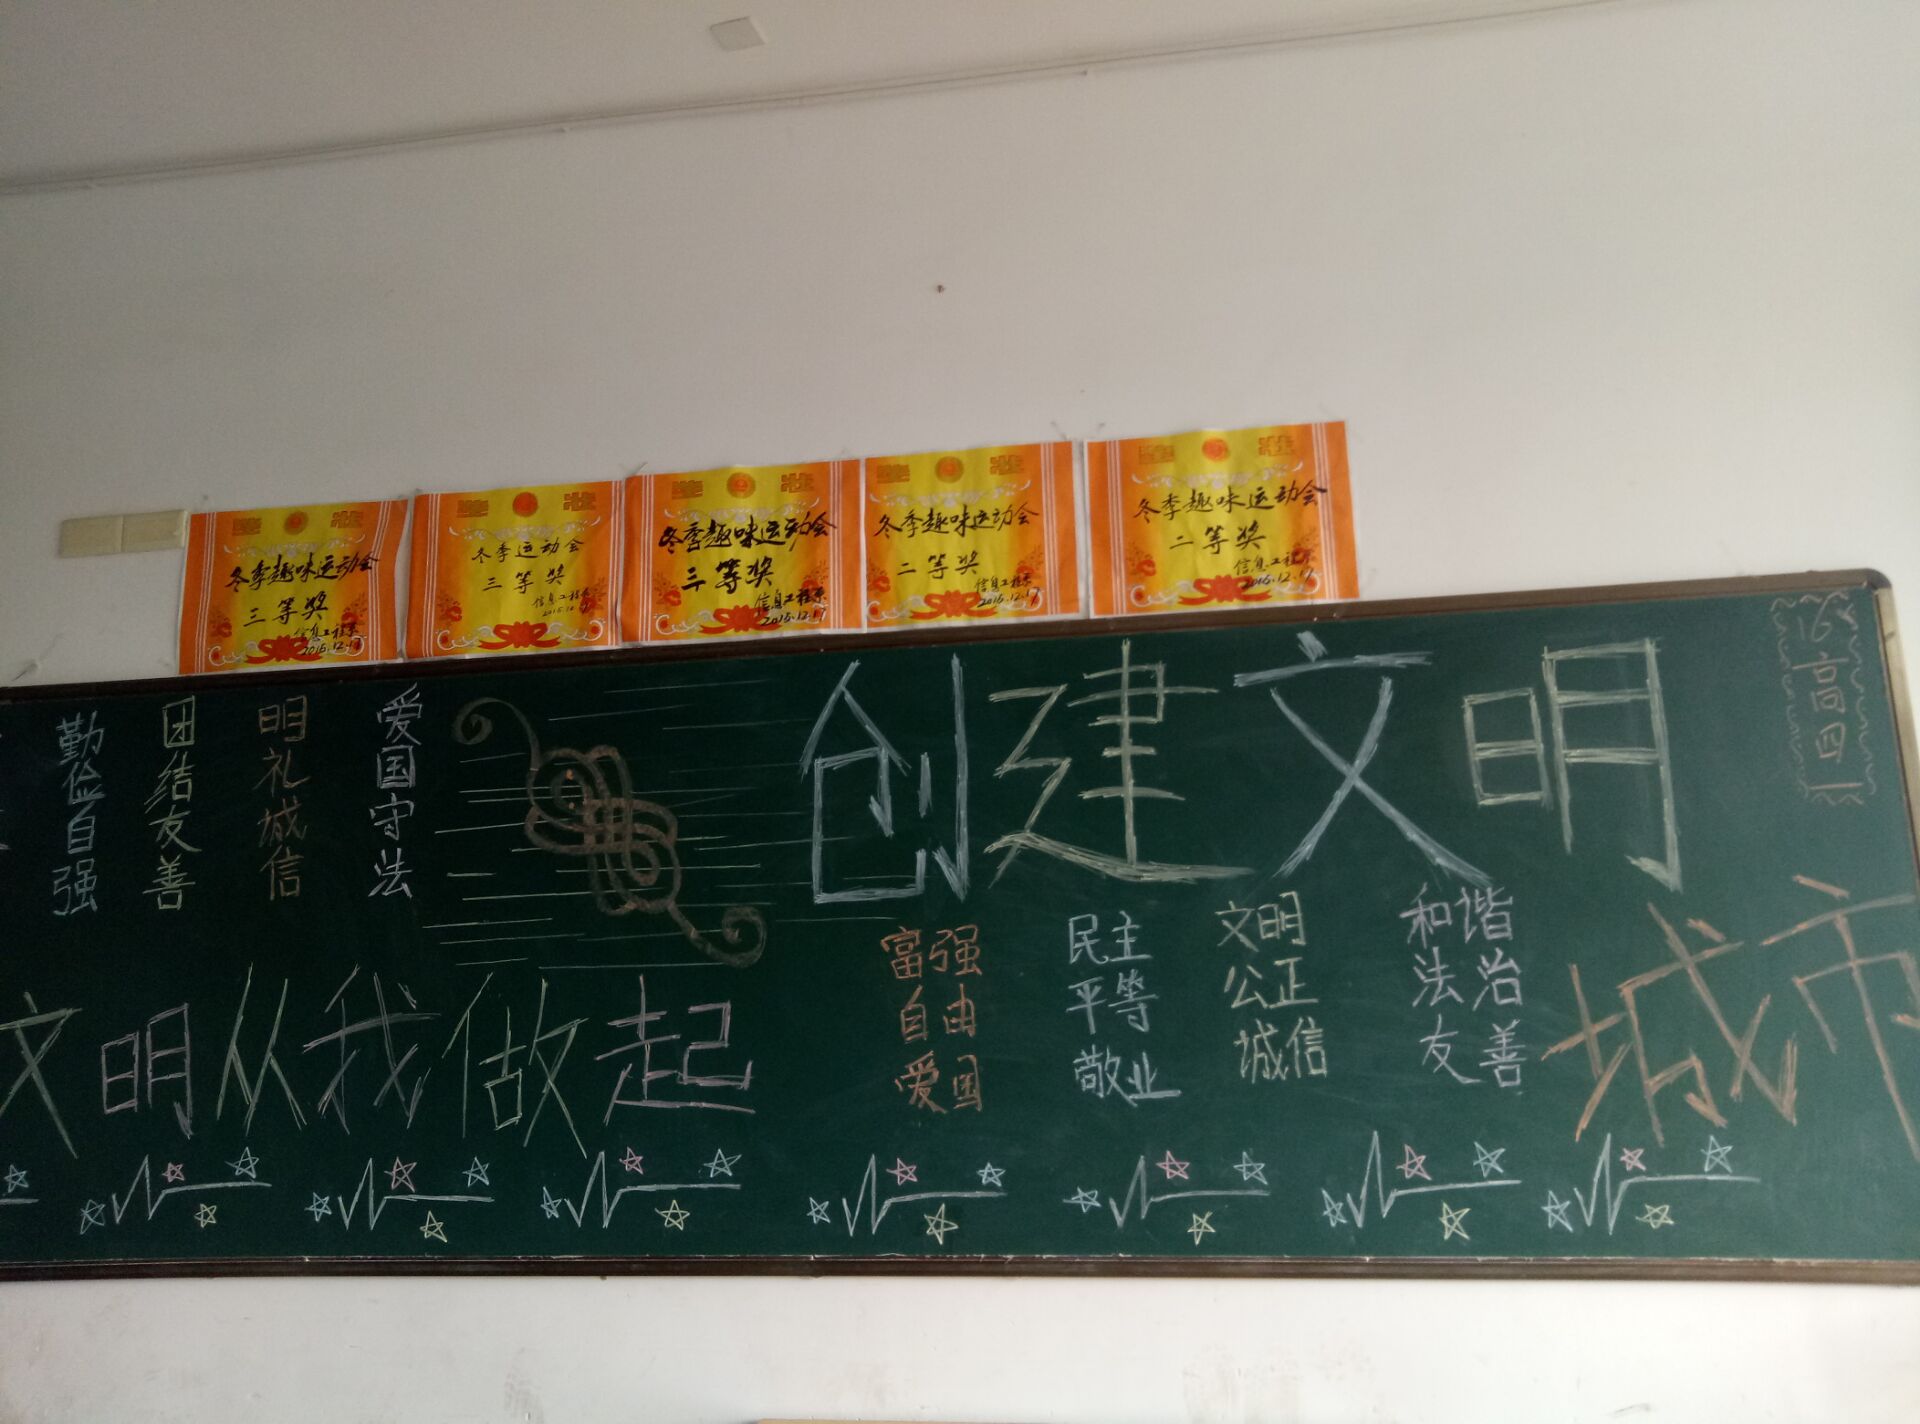 奖状
冬季趣味运动会
三等奖
信息工程系
2016.12.17
奖状
冬季运动会
三等奖
信息工程系
2016.12.17
奖状
冬季趣味运动会
三等奖
信息工程系
2016.12.17
奖状
冬季趣味运动会
二等奖
信息工程系
2016.12.17
奖状
冬季趣味运动会
二等奖
信息工程系
2016.12.17
16高四
创建文明
城市
爱国守法
明礼诚信
团结友善
勤俭自强
富强
自由
爱国
民主
平等
敬业
文明
公正
诚信
和谐
法治
友善
文明从我做起